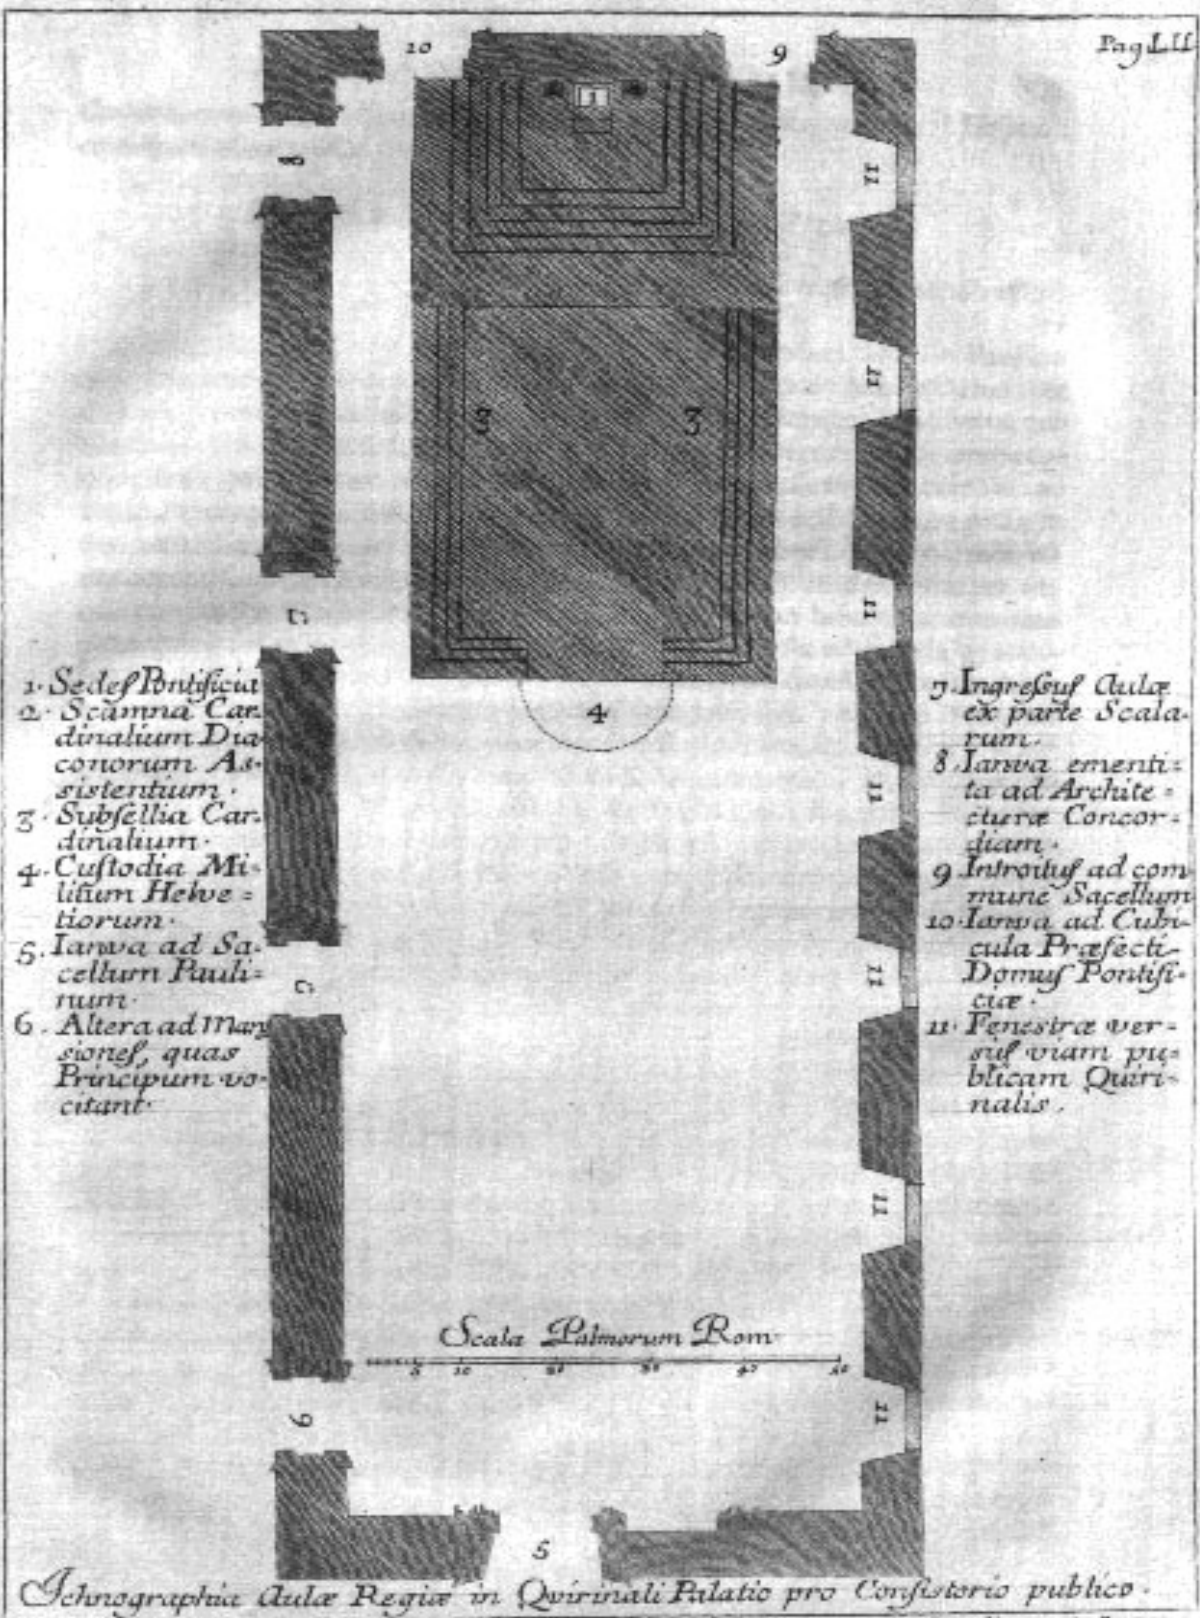 10
9
Pag LII
1
8
11
11
3
3
11
7
4
1. Sedes Pontificia
2. Scamna Car-
dinalium Dia-
conorum As-
sistentium.
3. Subsellia Car-
dinalium.
4. Custodia Mi-
litum Helve=
tiorum.
5. Ianua ad Sa-
cellum Pauli=
num.
6. Altera ad Man
siones, quas
Principum vo-
citant.
7. Ingressus Aulæ
ex parte Scala-
rum.
8. Ianua ementi=
ta ad Archite=
cturæ Concor=
diam.
9 Introitus ad com
mune Sacellum
10. Ianua ad Cubi=
cula Præfecti
Domus Pontifi=
ciæ.
11. Fenestræ ver=
sus viam pu=
blicam Quiri=
nalis.
11
7
11
11
Scala Palmorum Rom.
5 10 20 30 40 50
6
11
5
Ichnographia Aulæ Regiæ in Qvirinali Palatio pro Consistorio publico.